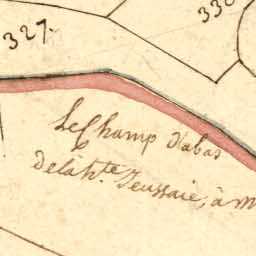 327.
330
Le Champ d'abas
de la h.te Teussaie, à m